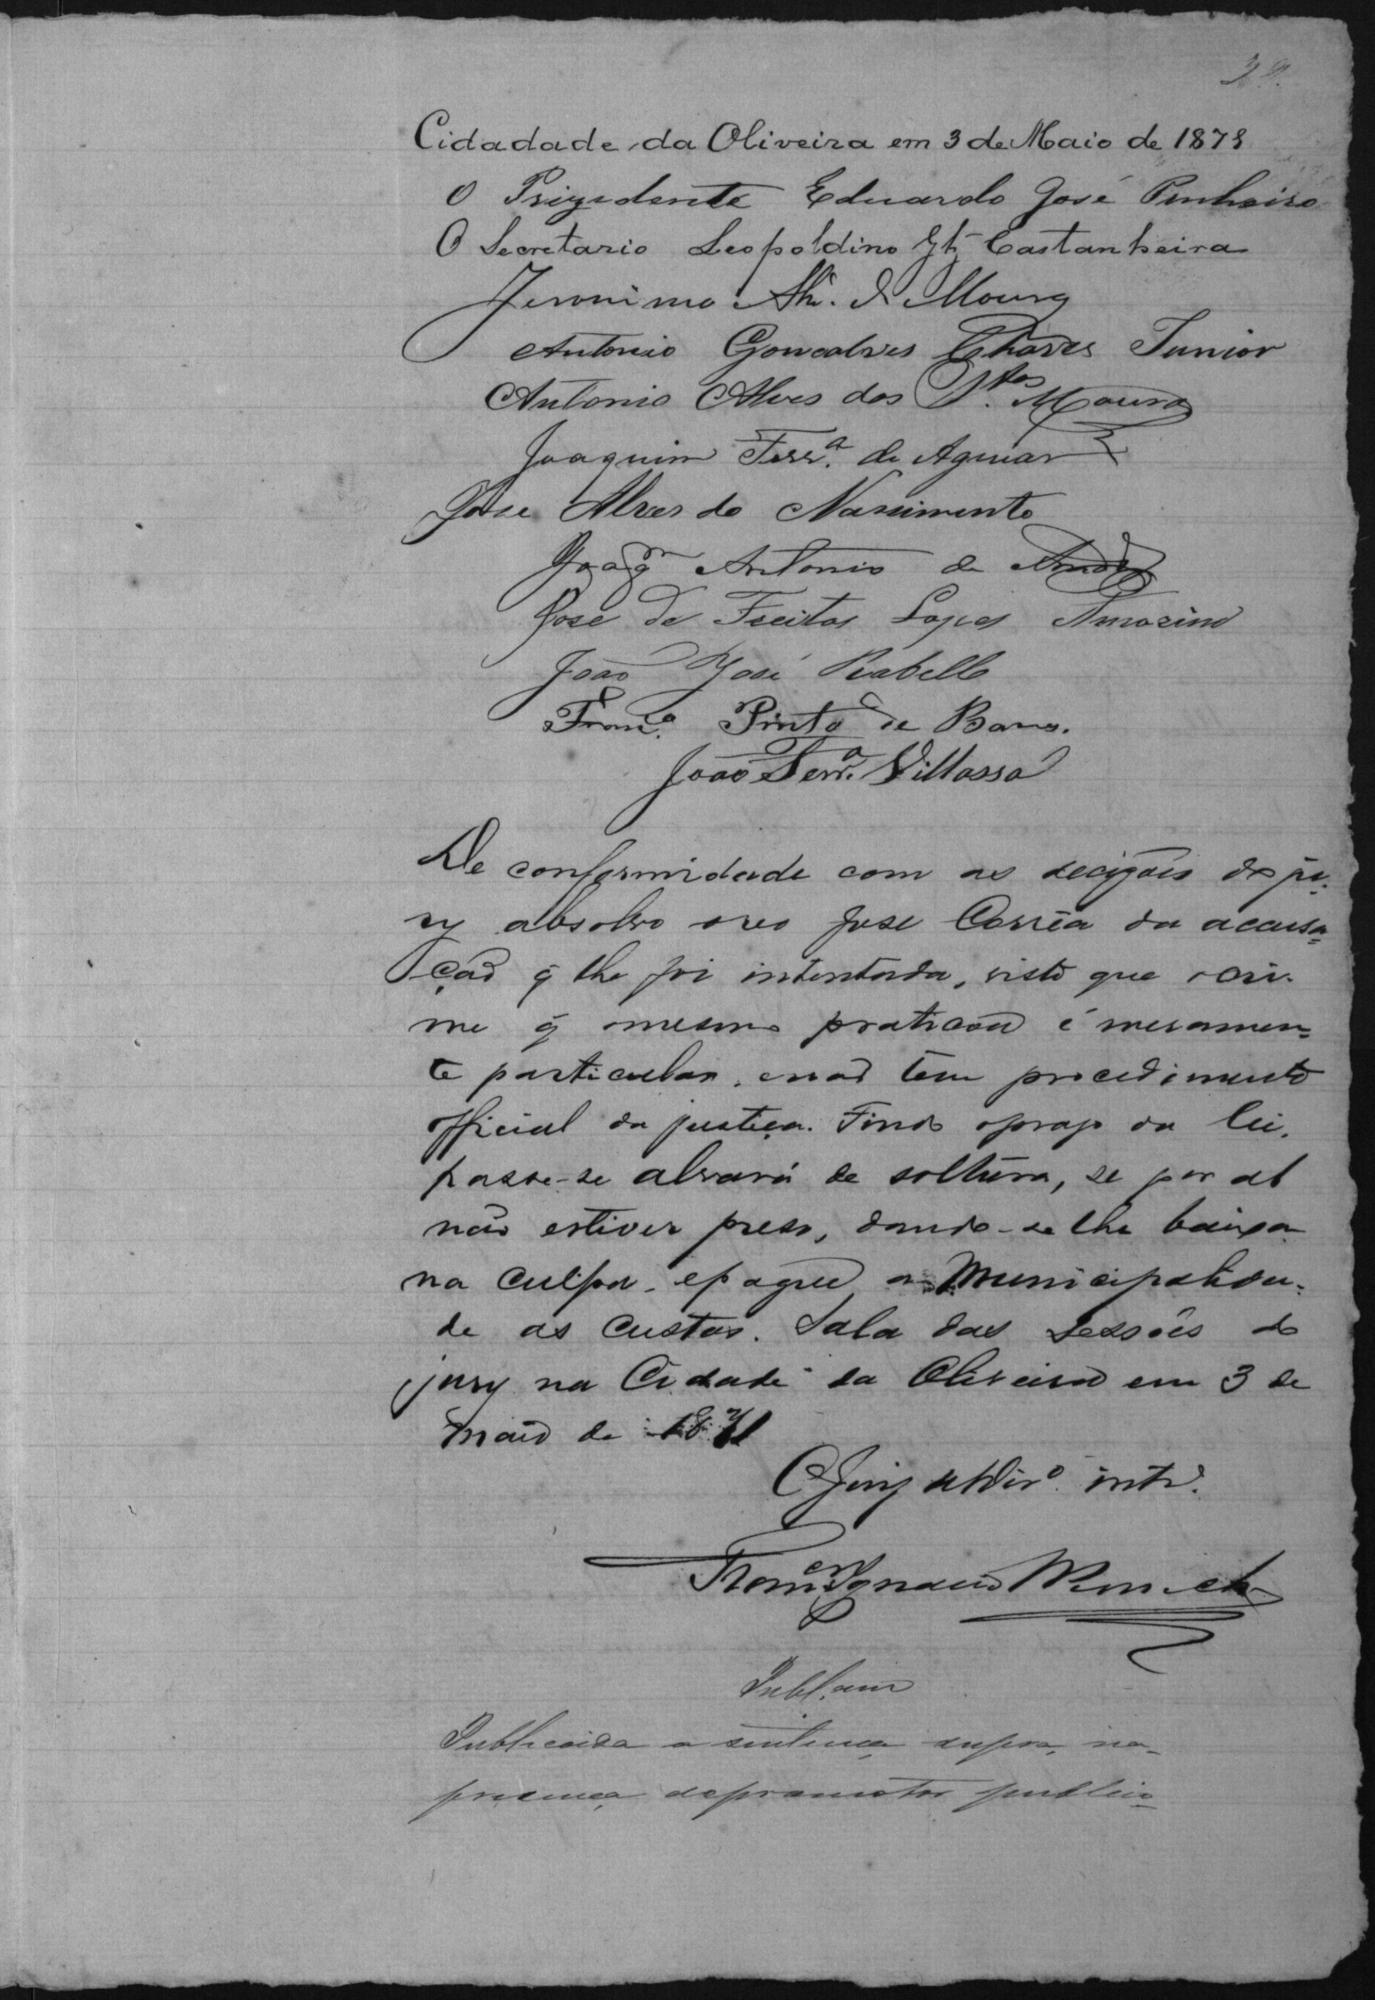 Cidadade da Oliveira em 3 de Maio de 1878
O Prizedente Eduardo José Pinheiro
O Secretario Leopoldino Castanheira
Jeronimo de Moura
Antonio Goncalves Chaves Junior
Antonio Alves dos S.tos Moura
Joaquim Ferr.a de Aguiar
Jose Alves do Nascimento
Joaqm Antonio de
José de Freitas Lopes Amorim
João José Rabello
Franc.o Pinto de Barros.
João Ferr.a Villassa
De conformidade com as decizões do ju-
ry absolvo o reo José Corrêa da accusa=
ção q̃ lhe foi intentada, visto que o cri-
me q̃ o mesmo praticou é meramen=
te particular, e não tem procedimento
official da justiça. Findo o praso da lei,
passe-se alvará de soltura, se por al
não estiver preso, dando-se lhe baixa
na culpa, e pague a Municipalida-
de as custas. Sala das Sessões do
jury na Cidade da Oliveira em 3 de
Maio de 187
O Juiz de Dir.o int.o
Franc.co Ignacio
Publ.am
Publicada a sentença supra, na
presença do promotor publico